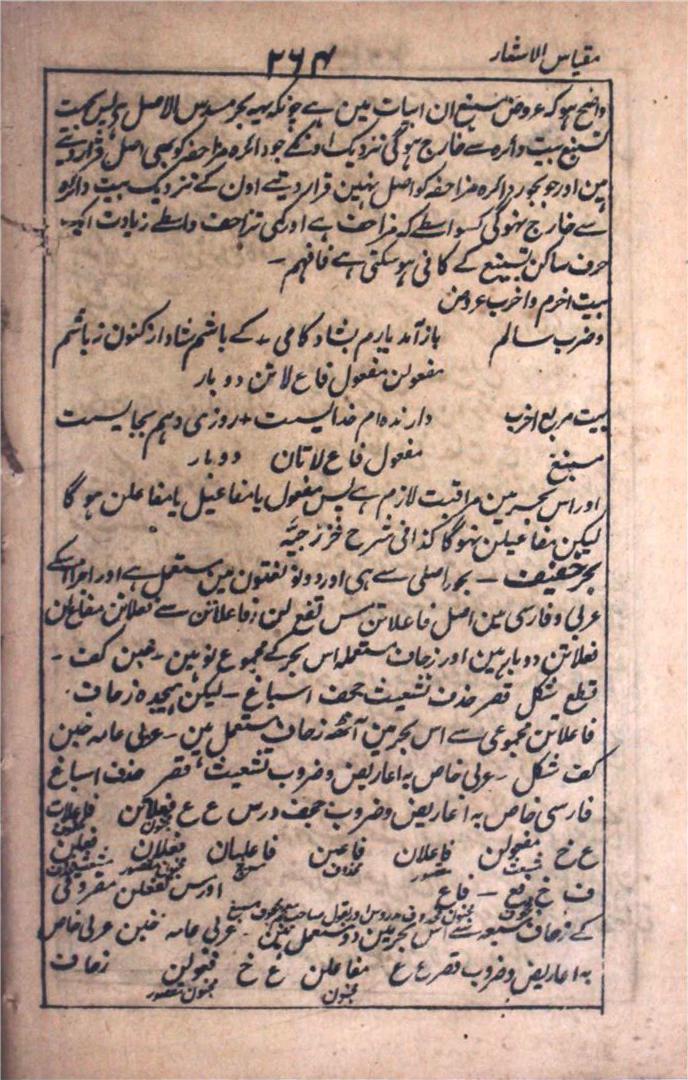 مقیاس الاشعار
۲۶۴
واضح ہو کہ عروض مسبغ ان ابیات مین ہے چونکہ یہہ بحر مسدس الاصل ہے پس بجہت
تسبیغ بیت دائرہ سے خارج ہوگی نزدیک اونکے جو دائرہ مزاحفہ کو بھی اصل قرار دیتے
ہین اور جو بحور دائرہ مزاحفہ کو اصل نہین قرار دیتے اون کے نزدیک بیت دائرہ
سے خارج نہوگی کسواسطے کہ مزاحف ہے اور کمی تزاحف واسطے زیادت ایک
حرف ساکن تسبیغ کے کافی ہو سکتی ہے فافہم ـ
بیت اخرم و اخرب عروض
و ضرب سالم باز آمد یارم بشاد کامی + کے باشم شاد از کنون نباشم
مفعولن مفعول فاع لاتن دو بار
بیت مربع اخرب دارندہ ام خدایست + روزی دہم بجایست
مسبغ مفعول فاع لاتان دو بار
اور اس بحر مین مراقبت لازم ہے پس مفعول یا مفاعیل یا مفاعلن ہوگا
لیکن مفاعیلن نہوگا کذا فی شرح خزرجیَّہ
بحر خفیف ـ بحور اصلی سے ہی اور دونو لغتون مین مستعمل ہے اور اجزا اسکے
عربی و فارسی مین اصل فاعلاتن مس تفع لن فاعلاتن سے فعلاتن مفاعلن
فعلاتن دو بار ہین اور زحاف مستعملہ اس بحر کے مجموع نو ہین ـ خبن کف ـ
قطع شکل قصر حذف تشعیث جحف اسباغ ـ لیکن زحاف
فاعلاتن مجموعی سے اس بحر مین آٹھہ زحاف مستعمل ہین ـ عربی عامہ خبن
کف شکل ـ عربی خاص بہ اعاریض و ضروب تشعیث قصر حذف اسباغ
فارسی خاص بہ اعاریض و ضروب جحف درس ع ع فعلاتن فاعلات
مخبون مکفوف
ع خ مفعولن فاعلان فاعلن فاعلیان فعلان فعلن
مشعث مقصور محذوف مسبغ مخبون مقصور
ف خ فع ـ فاع اور مس تفع لن مفروقی
مجحوف
کے زحاف سبعہ سے اس بحر مین دو مستعمل ہین عربی عامہ خبن عربی خاص
بہ اعاریض و ضروب قصر ع ع مفاعلن ع خ فعولن زحاف
مخبون مخبون مقصور